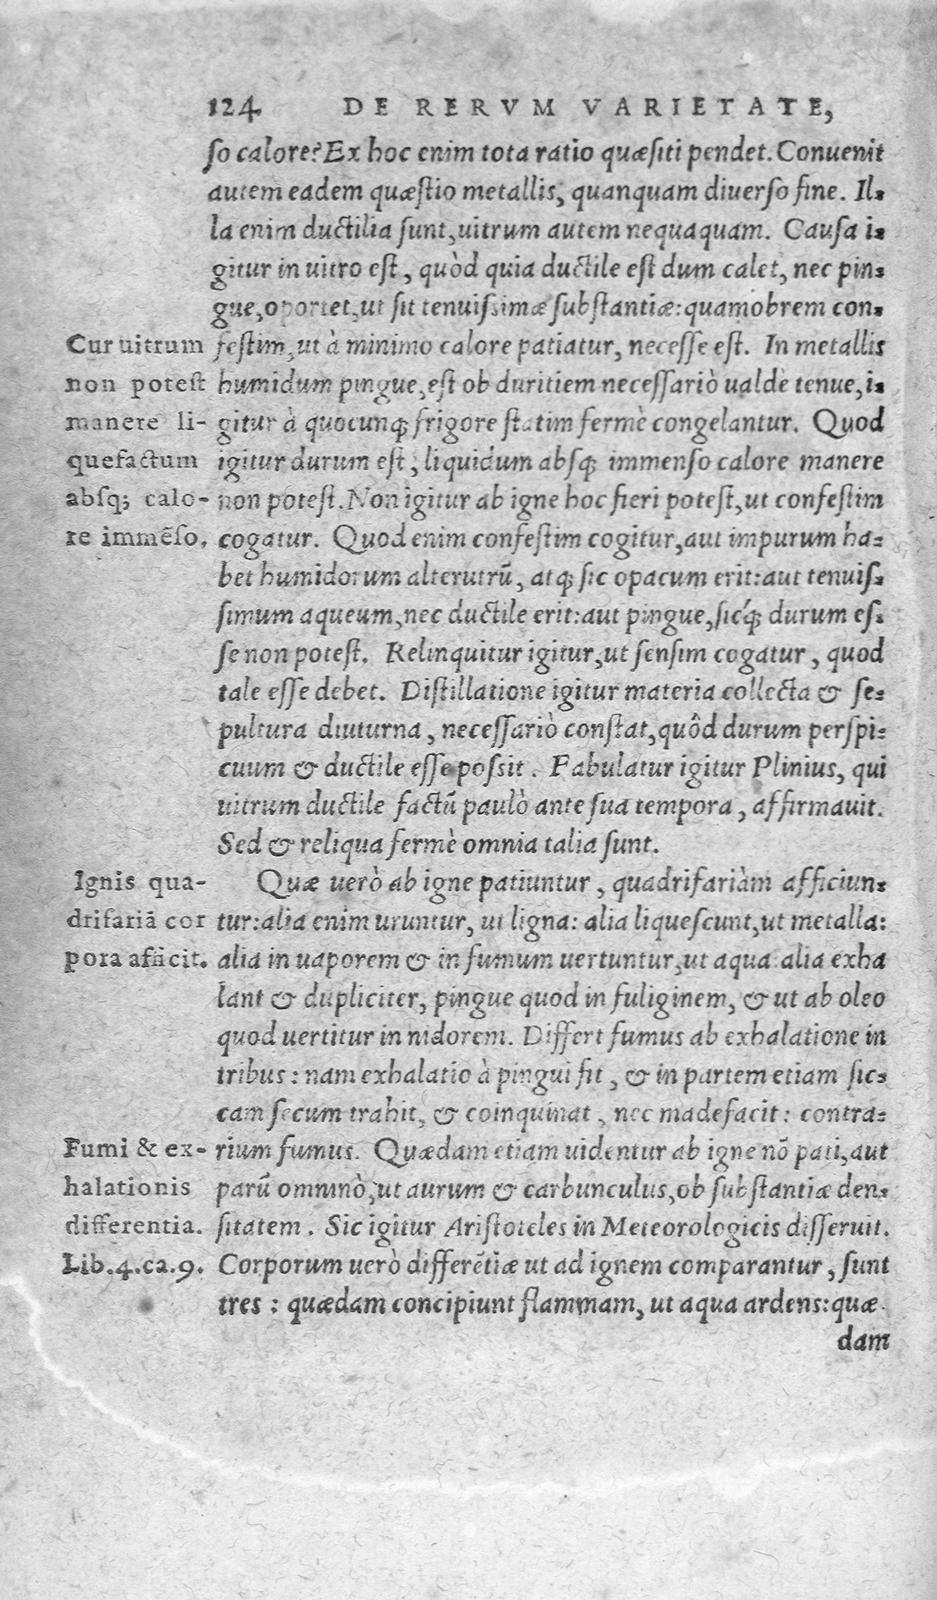 124 DE RERVM VARIETATE,
so calore? Ex hoc enim tota ratio quæsiti pendet. Conuenit
autem eadem quæstio metallis, quanquam diuerso fine. Il-
la enim ductilia sunt, uitrum autem nequaquam. Causa i-
gitur in uitro est, quòd quia ductile est dum calet, nec pin-
gue, oportet, ut sit tenuissimæ substantiæ: quamobrem con-
Cur uitrum
non potest
manere li-
quefactum
absq; calo-
re immẽso.
festim, ut à minimo calore patiatur, necesse est. In metallis
humidum pingue, est ob duritiem necessariò ualdè tenue, i-
gitur à quocunq; frigore statim fermè congelantur. Quod
igitur durum est, liquidum absq; immenso calore manere
non potest. Non igitur ab igne hoc fieri potest, ut confestim
cogatur. Quod enim confestim cogitur, aut impurum ha-
bet humidorum alterutrũ, atq; sic opacum erit: aut tenuis-
simum aqueum, nec ductile erit: aut pingue, sicq́; durum es-
se non potest. Relinquitur igitur, ut sensim cogatur, quod
tale esse debet. Distillatione igitur materia collecta & se-
pultura diuturna, necessariò constat, quôd durum perspi-
cuum & ductile esse possit. Fabulatur igitur Plinius, qui
uitrum ductile factũ paulò ante sua tempora, affirmauit.
Sed & reliqua fermè omnia talia sunt.
Ignis qua-
drifariã cor
pora afficit.
Quæ uerò ab igne patiuntur, quadrifariàm afficiun-
tur: alia enim uruntur, ut ligna: alia liquescunt, ut metalla:
alia in uaporem & in fumum uertuntur, ut aqua: alia exha
lant & dupliciter, pingue quod in fuliginem, & ut ab oleo
quod uertitur in nidorem. Differt fumus ab exhalatione in
tribus: nam exhalatio à pingui fit, & in partem etiam sic-
cam secum trahit, & coinquinat, nec madefacit: contra-
Fumi & ex-
halationis
differentia.
Lib.4.ca.9.
rium fumus. Quædam etiam uidentur ab igne nõ pati, aut
parũ omninò, ut aurum & carbunculus, ob substantiæ den-
sitatem. Sic igitur Aristoteles in Meteorologicis disseruit.
Corporum uerò differẽtiæ ut ad ignem comparantur, sunt
tres: quædam concipiunt flammam, ut aqua ardens: quæ
dam